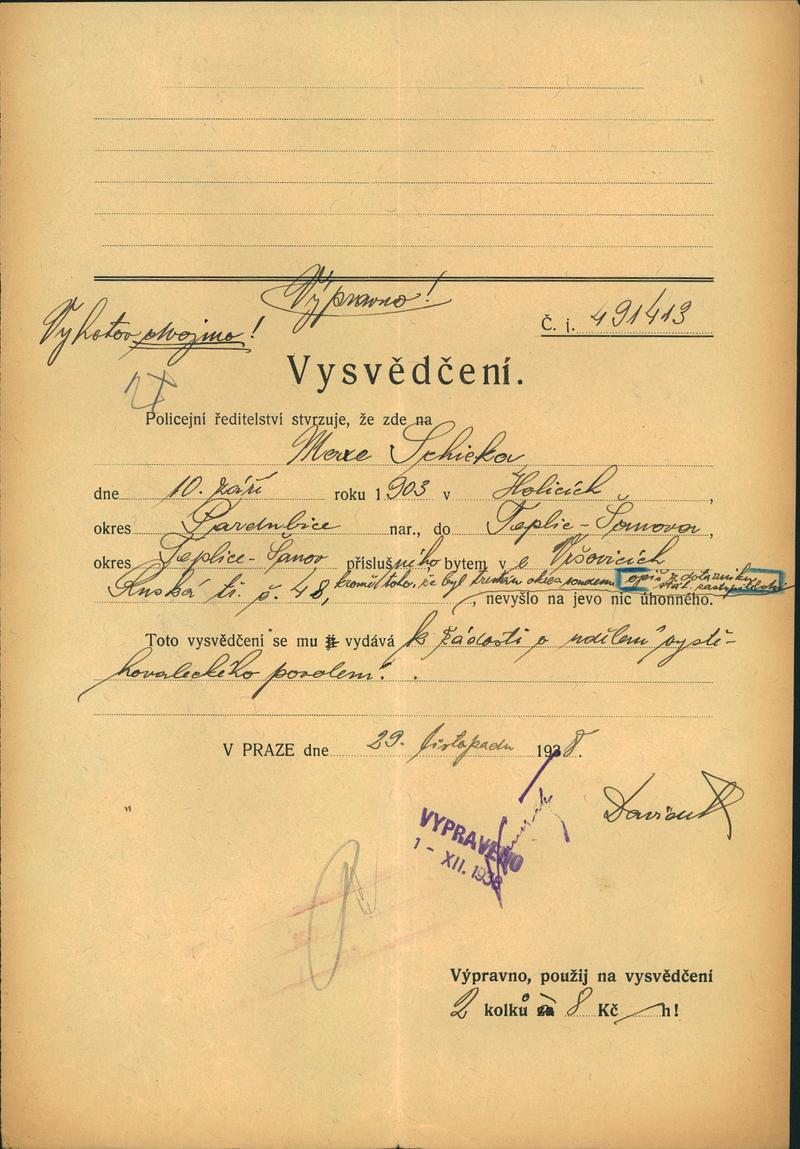 Výpravno!
Vyhotov dvojmo!
Č. j. 491413
Vysvědčení.
Policejní ředitelství stvrzuje, že zde na
Maxe Schicka
dne 10. září roku 1903 v Holicích,
okres Pardubice nar., do Teplic-Šanova,
okres Teplice-Šanov příslušného bytem v Vršovicích
Ruská tř. č. 48, kromě toho, že byl trestán soudem opis z dotazníku
, nevyšlo na jevo nic úhonného.
Toto vysvědčení se mu vydává k žádosti o udělení vystě-
hovaleckého povolení.
V PRAZE dne 29. listopadu 1938.
VYPRAVENO
1 - XII. 1938
Výpravno, použij na vysvědčení
2 kolků za 8 Kč — h!